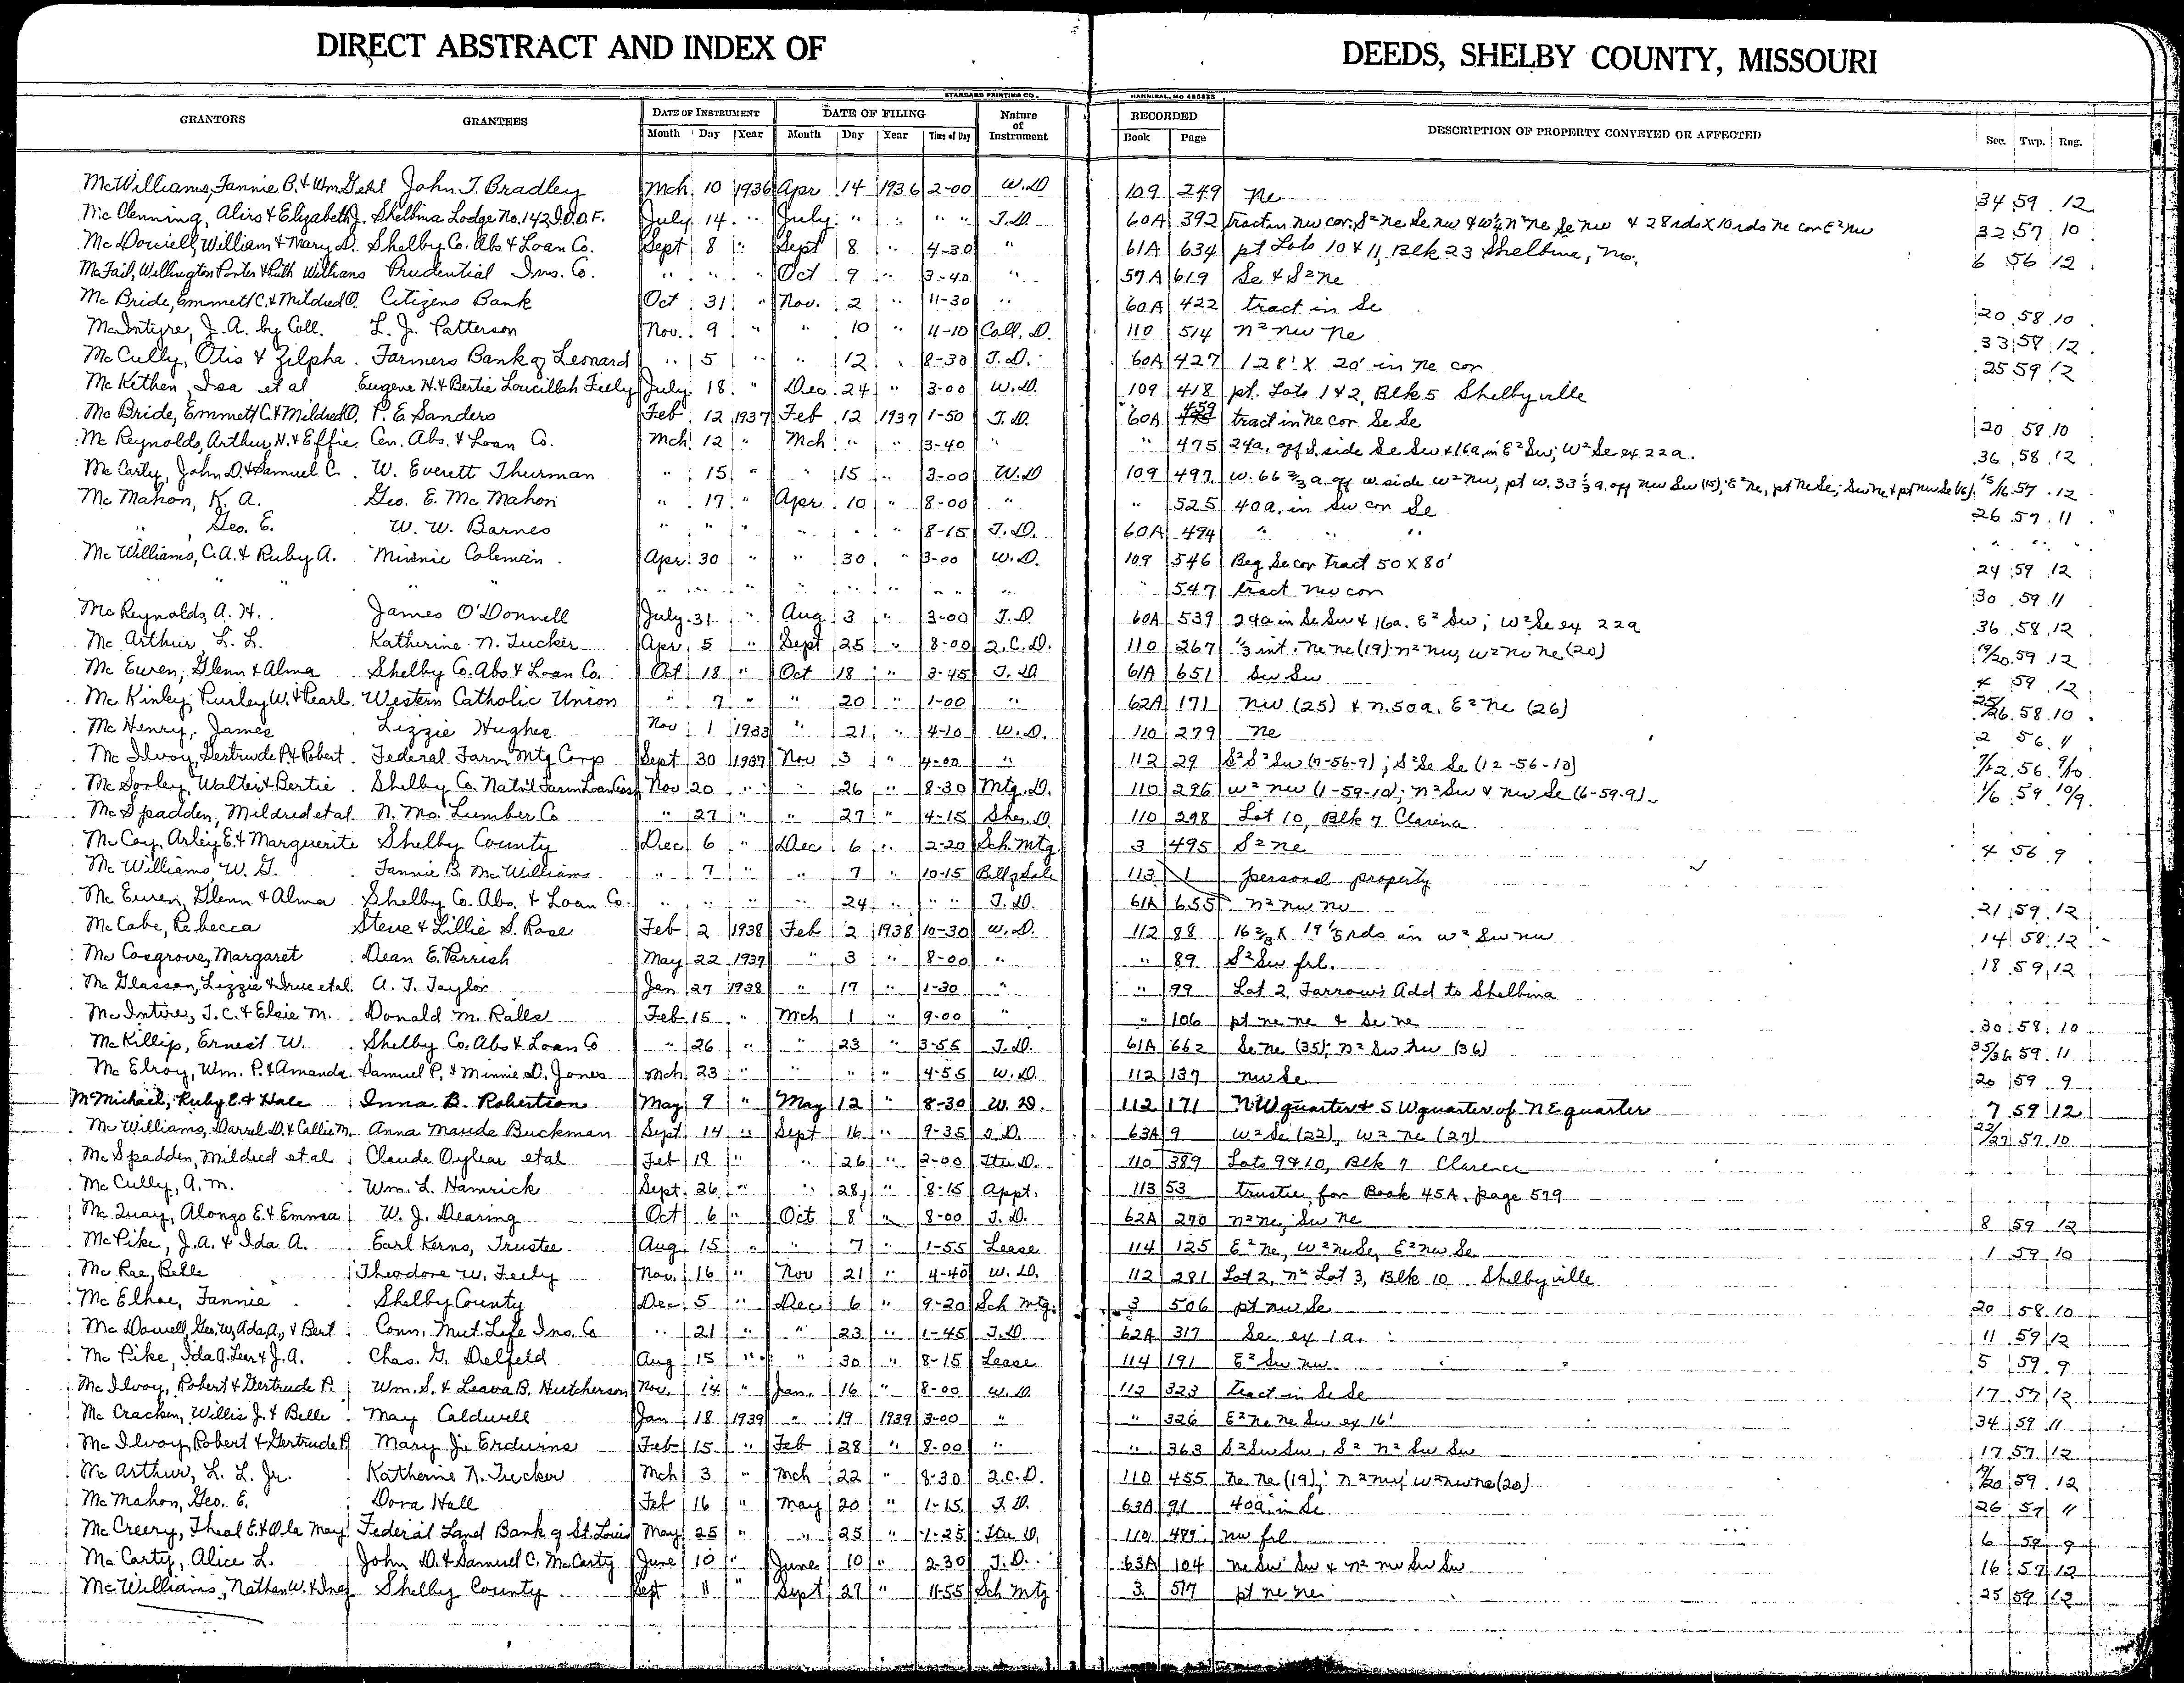 DIRECT ABSTRACT AND INDEX OF DEEDS, SHELBY COUNTY, MISSOURI
STANDARD PRINTING CO. HANNIBAL, MO
GRANTORS GRANTEES DATE OF INSTRUMENT DATE OF FILING Nature of Instrument RECORDED DESCRIPTION OF PROPERTY CONVEYED OR AFFECTED Sec. Twp. Rng.
Month Day Year Month Day Year Time of Day Book Page
McWilliams, Fannie B. & Wm. Gehl John T. Bradley Mch 10 1936 Apr 14 1936 2-00 W.D 109 249 Ne 34 59 12
Mc Clenning, & Elizabeth J. Shelbina Lodge No. 142, I.O.O.F. July 14 " July " " " " T.D. 60A 392 tract in nw cor. S² ne Se nw & w½ n² ne Se nw & 28 rds X 10 rds ne cor E² nw 32 57 10
Mc Dowell, William & Mary D. Shelby Co. Abs & Loan Co. Sept 8 " Sept 8 " 4-30 " 61A 634 pt Lots 10 & 11, Blk 23 Shelbina, Mo.
McFail, Wellington Porter & Ruth Williams Prudential Ins. Co. " " " Oct 9 " 3-40 " 57A 619 Se & S² ne 6 56 12
Mc Bride, Emmett C. & Mildred O. Citizens Bank Oct 31 " Nov. 2 " 11-30 " 60A 422 tract in Se 20 58 10
McIntyre, J. A. by Coll. L. J. Patterson Nov. 9 " " 10 " 11-10 Coll. D. 110 514 n² nw ne 33 57 12
Mc Cully, Otis & Zilpha Farmers Bank of Leonard " 5 " " 12 " 8-30 T.D. 60A 427 128' X 20' in ne cor 25 59 12
Mc Kethen, Isa et al Eugene H. & Bertie Loucillah Feely July 18 " Dec 24 " 3-00 W.D. 109 418 pt. Lots 1 & 2, Blk 5 Shelbyville
Mc Bride, Emmett C. & Mildred O. P. E. Sanders Feb 12 1937 Feb 12 1937 1-50 T.D. 60A 459 tract in ne cor Se Se 20 58 10
Mc Reynolds, Arthur H. & Effie Cen. Abs. & Loan Co. Mch 12 " Mch " " 3-40 " " 475 24a. off S. side Se Sw & 16a. in E² Sw; W² Se ex 22a. 36 58 12
Mc Carty, John D. & Samuel C. W. Everett Thurman " 15 " " 15 " 3-00 W.D 109 497 w. 66 2/3 a. off w. side w² nw, pt w. 33 1/3 a. off nw Sw (15); E² ne, pt ne Se; Sw ne & pt nw Se (16) 15/16 57 12
Mc Mahon, K. A. Geo. E. Mc Mahon " 17 " Apr 10 " 8-00 " " 525 40a. in Sw cor Se 26 57 11
" Geo. E. W. W. Barnes " " " " " " 8-15 T.D. 60A 494 " " " " " "
Mc Williams, C. A. & Ruby A. Minnie Coleman Apr 30 " " 30 " 3-00 W.D. 109 546 Beg Se cor Tract 50 X 80' 24 59 12
" " " " " " " " " " " " " 547 tract nw cor 30 59 11
Mc Reynolds, A. H. James O'Donnell July 31 " Aug 3 " 3-00 T.D. 60A 539 24a in Se Sw & 16a. E² Sw; W² Se ex 22a 36 58 12
Mc Arthur, L. L. Katherine N. Tucker Apr 5 " Sept 25 " 8-00 Q.C.D. 110 267 1/3 int. ne ne (19) n² nw, w² nw ne (20) 19/20 59 12
Mc Euen, Glenn & Alma Shelby Co. Abs & Loan Co. Oct 18 " Oct 18 " 3-45 T.D. 61A 651 Sw Sw 4 59 12
Mc Kinley, Purley W. & Pearl Western Catholic Union " 7 " " 20 " 1-00 " 62A 171 nw (25) & n. 50a. E² ne (26) 25/26 58 10
Mc Henry, James Lizzie Hughes Nov 1 1933 " 21 " 4-10 W.D. 110 279 ne 2 56 11
Mc Ilvoy, Gertrude P. & Robert Federal Farm Mtg Corp Sept 30 1937 Nov 3 " 4-00 " 112 29 S² S² Sw (7-56-9); S² Se Se (12-56-10) 7/12 56 9/10
Mc Sorley, Walter & Bertie Shelby Co. Nat'l Farm Loan Nov 20 " " 26 " 8-30 Mtg. D. 110 296 w² nw (1-59-10); n² Sw & nw Se (6-59-9) 1/6 59 10/9
Mc Spadden, Mildred et al N. Mo. Lumber Co " 27 " " 27 " 4-15 Sher. D. 110 298 Lot 10, Blk 7 Clarence
Mc Coy, Arley E. & Marguerite Shelby County Dec 6 " Dec 6 " 2-20 Sch. Mtg. 3 495 S² ne 4 56 9
Mc Williams, W. G. Fannie B. McWilliams " 7 " " 7 " 10-15 Bill of Sale 113 1 personal property
Mc Euen, Glenn & Alma Shelby Co. Abs. & Loan Co. " " " " 24 " " " T.D. 61A 655 n² nw nw 21 59 12
Mc Cabe, Rebecca Steve & Lillie S. Rose Feb 2 1938 Feb 2 1938 10-30 W.D. 112 88 16 2/3 X 19 1/5 rds in w² Sw nw 14 58 12
Mc Cosgrove, Margaret Dean E. Parrish May 22 1937 " 3 " 8-00 " " 89 S² Sw frl. 18 59 12
Mc Glasson, Lizzie & True et al. A. T. Taylor Jan 27 1938 " 17 " 1-30 " " 99 Lot 2, Farrow's Add to Shelbina
Mc Intire, T. C. & Elsie M. Donald M. Ralls Feb 15 " Mch 1 " 9-00 " " 106 pt ne ne & Se ne 30 58 10
Mc Killip, Ernest W. Shelby Co. Abs & Loan Co " 26 " " 23 " 3-55 T.D. 61A 662 Se ne (35); n² Sw nw (36) 35/36 59 11
Mc Elroy, Wm. P. & Amanda Samuel P. & Minnie D. Jones Mch 23 " " " " 4-55 W.D. 112 137 nw Se 20 59 9
McMichael, Ruby E. & Hale Inna B. Robertson May 9 " May 12 " 8-30 W.D. 112 171 NW quarter & SW quarter of NE quarter 7 59 12
Mc Williams, Darrel D. & Callie M. Anna Maude Buckman Sept 14 " Sept 16 " 9-35 T.D. 63A 9 W² Se (22), W² ne (27) 22/27 57 10
Mc Spadden, Mildred et al Claude Oylear et al Feb 18 " " 26 " 2-00 Tte D. 110 389 Lots 9 & 10, Blk 7 Clarence
Mc Cully, A. M. Wm. L. Hamrick Sept 26 " " 28 " 8-15 Appt. 113 53 trustee for Book 45A, page 579
Mc Quay, Alonzo E. & Emma W. J. Dearing Oct 6 " Oct 8 " 8-00 T.D. 62A 270 n² ne, Sw ne 8 59 12
McPike, J. A. & Ida A. Earl Kerns, Trustee Aug 15 " " 7 " 1-55 Lease 114 125 E² ne, W² ne Se, E² nw Se 1 59 10
Mc Rae, Belle Theodore W. Feely Nov. 16 " Nov 21 " 4-40 W.D. 112 281 Lot 2, n² Lot 3, Blk 10 Shelbyville
Mc Elhoe, Fannie Shelby County Dec 5 " Dec 6 " 9-20 Sch Mtg. 3 506 pt nw Se 20 58 10
Mc Dowell, Geo. W, Ada A, & Bert Conn. Mut. Life Ins. Co " 21 " " 23 " 1-45 T.D. 62A 317 Se ex 1a. 11 59 12
Mc Pike, Ida A. Lear & J. A. Chas. G. Delfeld Aug 15 " " 30 " 8-15 Lease 114 191 E² Sw nw 5 59 9
Mc Ilvoy, Robert & Gertrude P. Wm. S. & Leava B. Hutcherson Nov. 14 " Jan. 16 " 8-00 W.D. 112 323 tract in Se Se 17 57 12
Mc Cracken, Willis J. & Belle May Caldwell Jan 18 1939 " 19 1939 3-00 " " 326 E² ne ne Sw ex 16' 34 59 11
Mc Ilvoy, Robert & Gertrude P. Mary J. Feb 15 " Feb 28 " 8-00 " " 363 S² Sw Sw, S² n² Sw Sw 17 57 12
Mc Arthur, L. L. Jr. Katherine N. Tucker Mch 3 " Mch 22 " 8-30 Q.C.D. 110 455 ne ne (19); n² nw; w² nw ne (20) 19/20 59 12
Mc Mahon, Geo. E. Dora Hall Feb 16 " May 20 " 1-15 T.D. 63A 91 40a. in Se 26 57 11
Mc Creery, Theal E. & Ola May Federal Land Bank of St. Louis May 25 " " 25 " 1-25 Tte D. 110 487 nw frl 6 59 9
Mc Carty, Alice L. John D. & Samuel C. McCarty June 10 " June 10 " 2-30 T.D. 63A 104 ne Sw Sw & n² nw Sw Sw 16 57 12
Mc Williams, Nathan W. & Inez Shelby County Sept 11 " Sept 27 " 11-55 Sch Mtg 3 517 pt ne ne 25 59 12